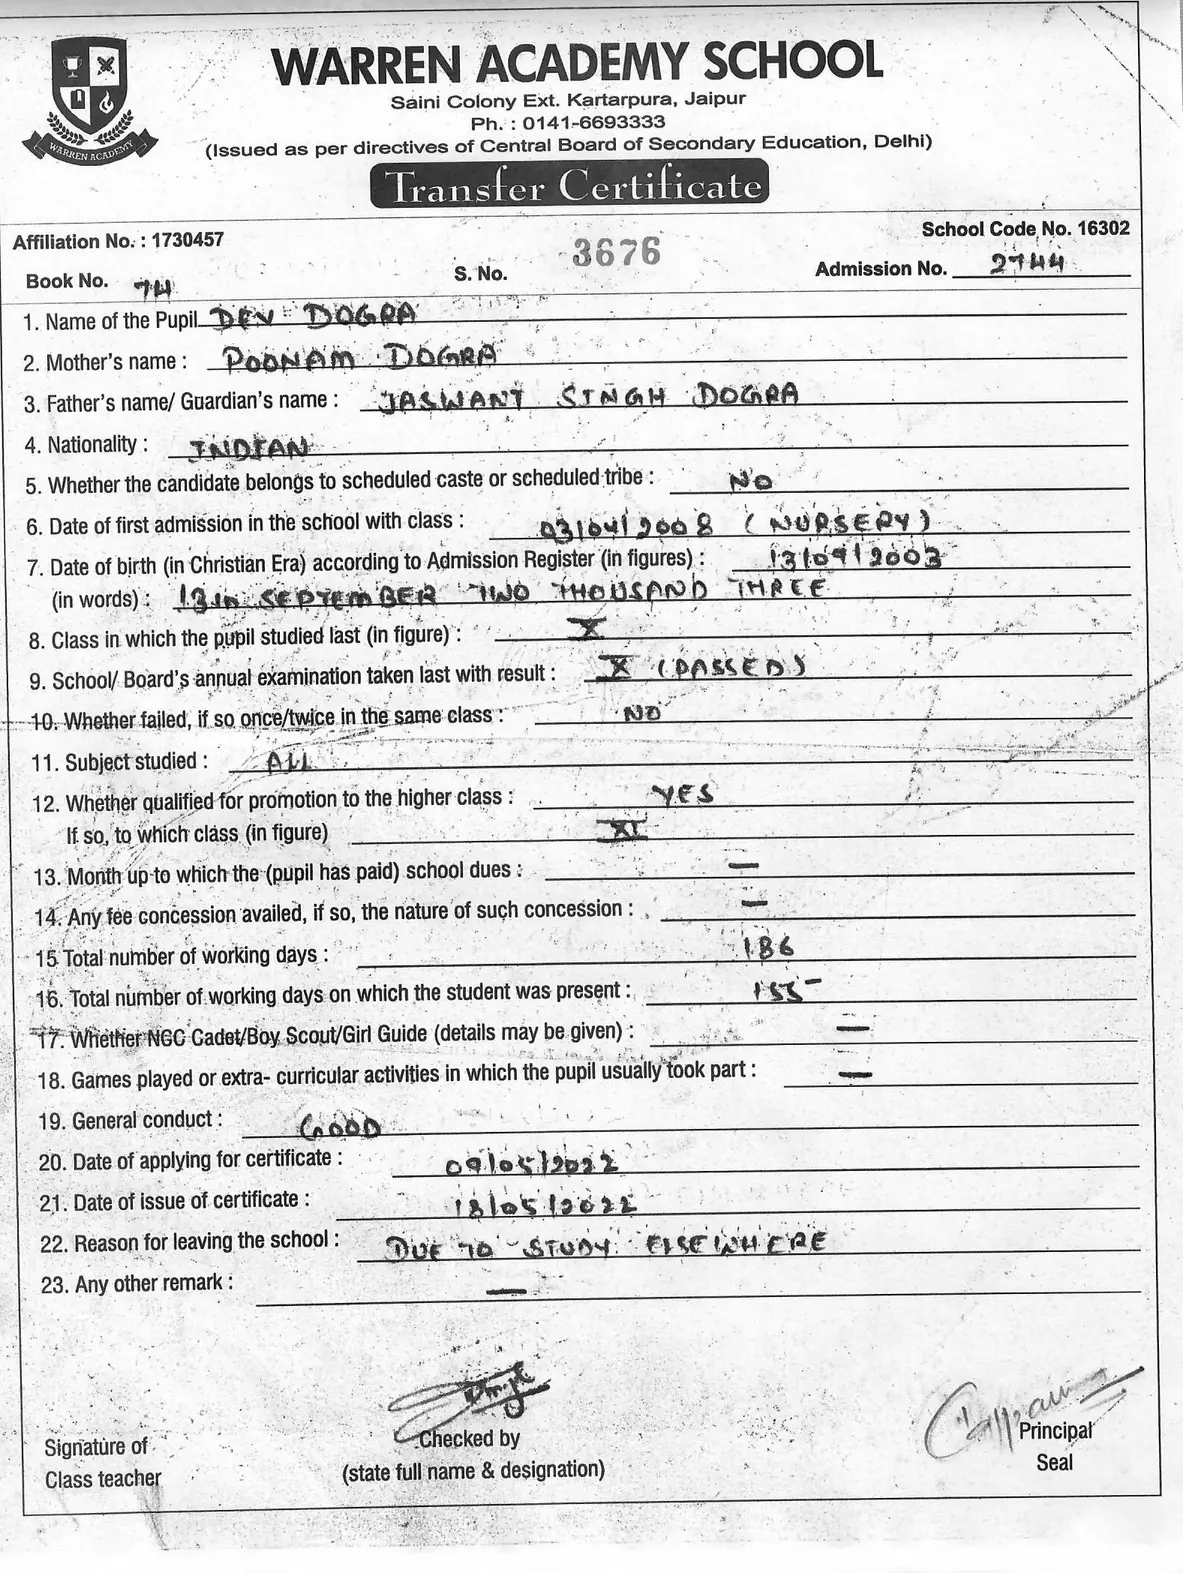 WARREN ACADEMY SCHOOL
Saini Colony Ext. Kartarpura, Jaipur
Ph. : 0141-6693333
(Issued as per directives of Central Board of Secondary Education, Delhi)
WARREN ACADEMY
Transfer Certificate
Affiliation No. : 1730457 School Code No. 16302
Book No. 74 S. No. 3676 Admission No. 2744
1. Name of the Pupil DEV DOGRA
2. Mother's name : POONAM DOGRA
3. Father's name/ Guardian's name : JASWANT SINGH DOGRA
4. Nationality : INDIAN
5. Whether the candidate belongs to scheduled caste or scheduled tribe : NO
6. Date of first admission in the school with class : 03/04/2008 (NURSERY)
7. Date of birth (in Christian Era) according to Admission Register (in figures) : 13/09/2003
(in words) : 13th SEPTEMBER TWO THOUSAND THREE
8. Class in which the pupil studied last (in figure) : X
9. School/ Board's annual examination taken last with result : X (PASSED)
10. Whether failed, if so once/twice in the same class : NO
11. Subject studied : ALL
12. Whether qualified for promotion to the higher class : YES
If so, to which class (in figure) XI
13. Month up to which the (pupil has paid) school dues : —
14. Any fee concession availed, if so, the nature of such concession : —
15 Total number of working days : 186
16. Total number of working days on which the student was present : 155
17. Whether NCC Cadet/Boy Scout/Girl Guide (details may be given) : —
18. Games played or extra- curricular activities in which the pupil usually took part : —
19. General conduct : GOOD
20. Date of applying for certificate : 09/05/2022
21. Date of issue of certificate : 18/05/2022
22. Reason for leaving the school : DUE TO STUDY ELSEWHERE
23. Any other remark : —
Signature of Checked by Principal
Class teacher (state full name & designation) Seal